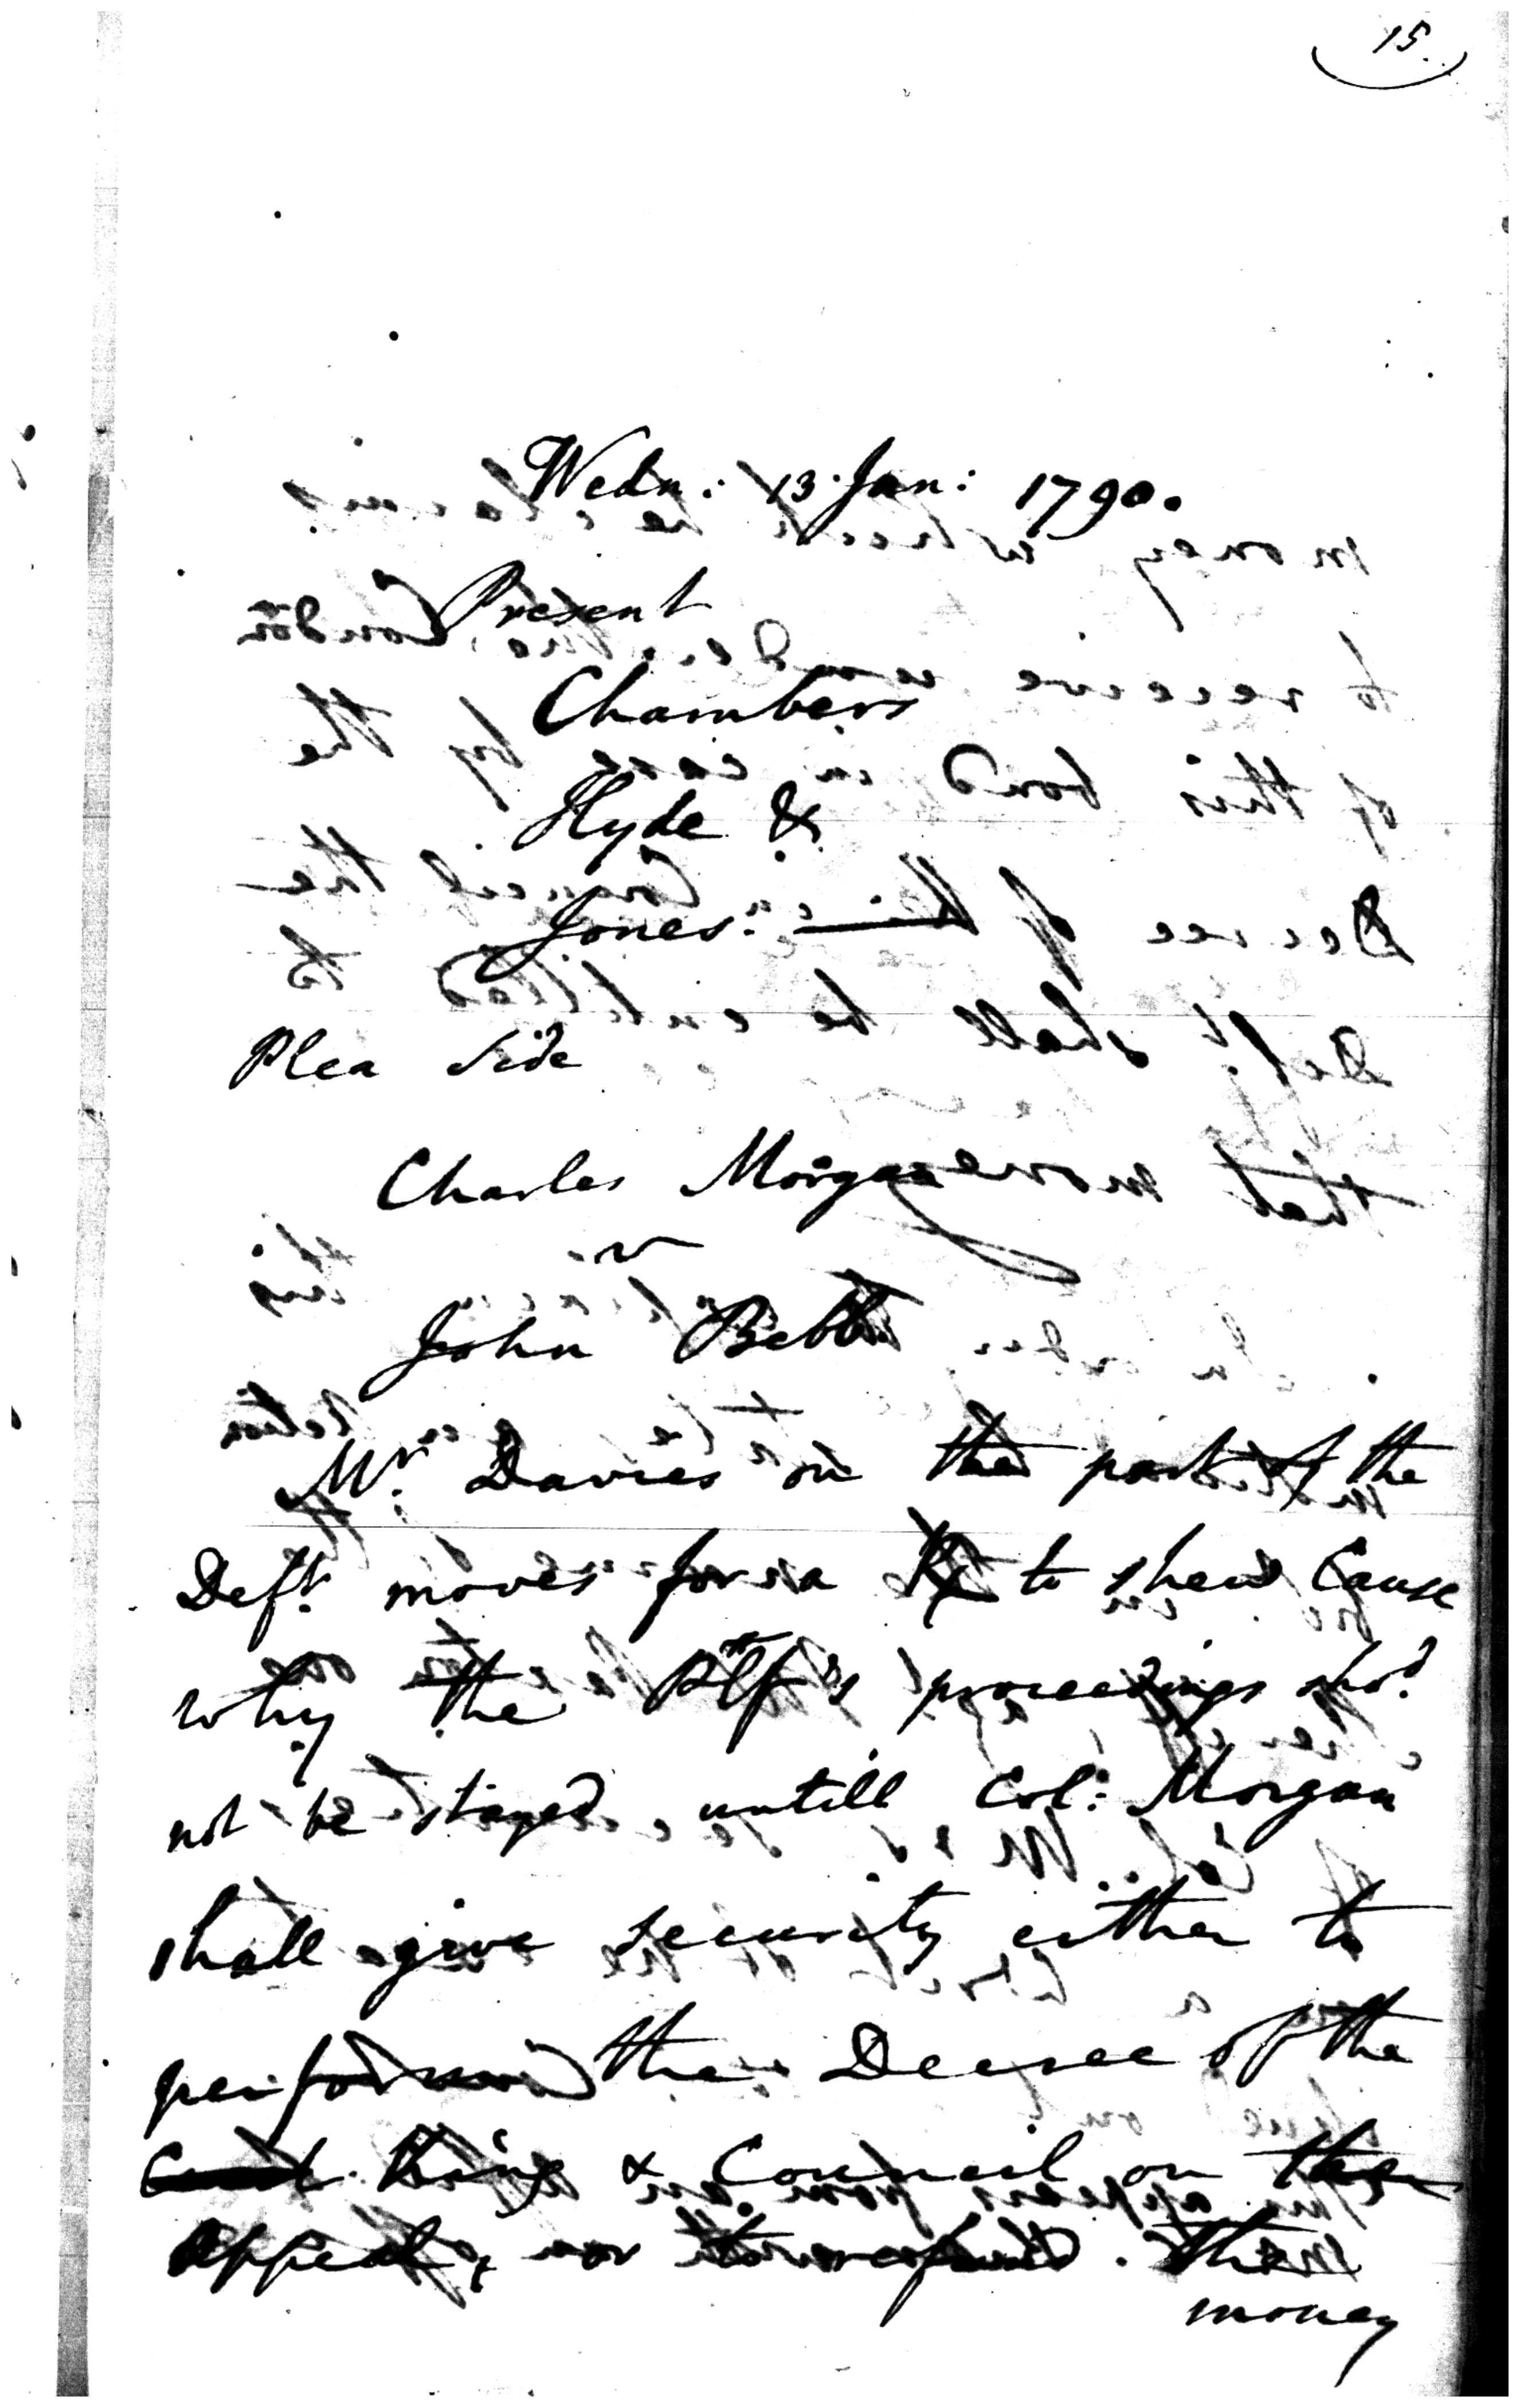 15.
Wedn: 13. Jan: 1790.
Present
Chambers
Hyde &
Jones.
Plea Side
Charles Morgan
v
John Bebb
Mr. Davies on the part of the
Deft. moves for a to shew Cause
why the Plf's proceedings shod.
not be stayed untill Col: Morgan
shall give security either to
perform the Decree of the
King & Council on the
Appeal, or to refund the
money